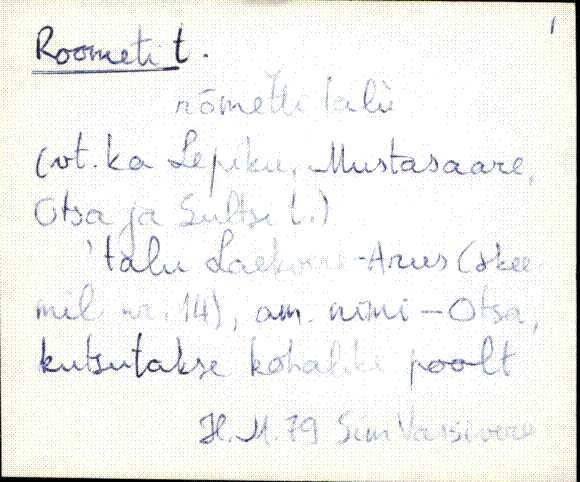 1
Roometi t.
rōmet't'i talù
(vt. ka Lepiku, Mustasaare,
Otsa ja Sultsi t.)
'talu Laekvere-Arus (skee-
mil nr. 14), am. nimi – Otsa,
kutsutakse kohalike poolt
H.M. 79 Sim Vassivere